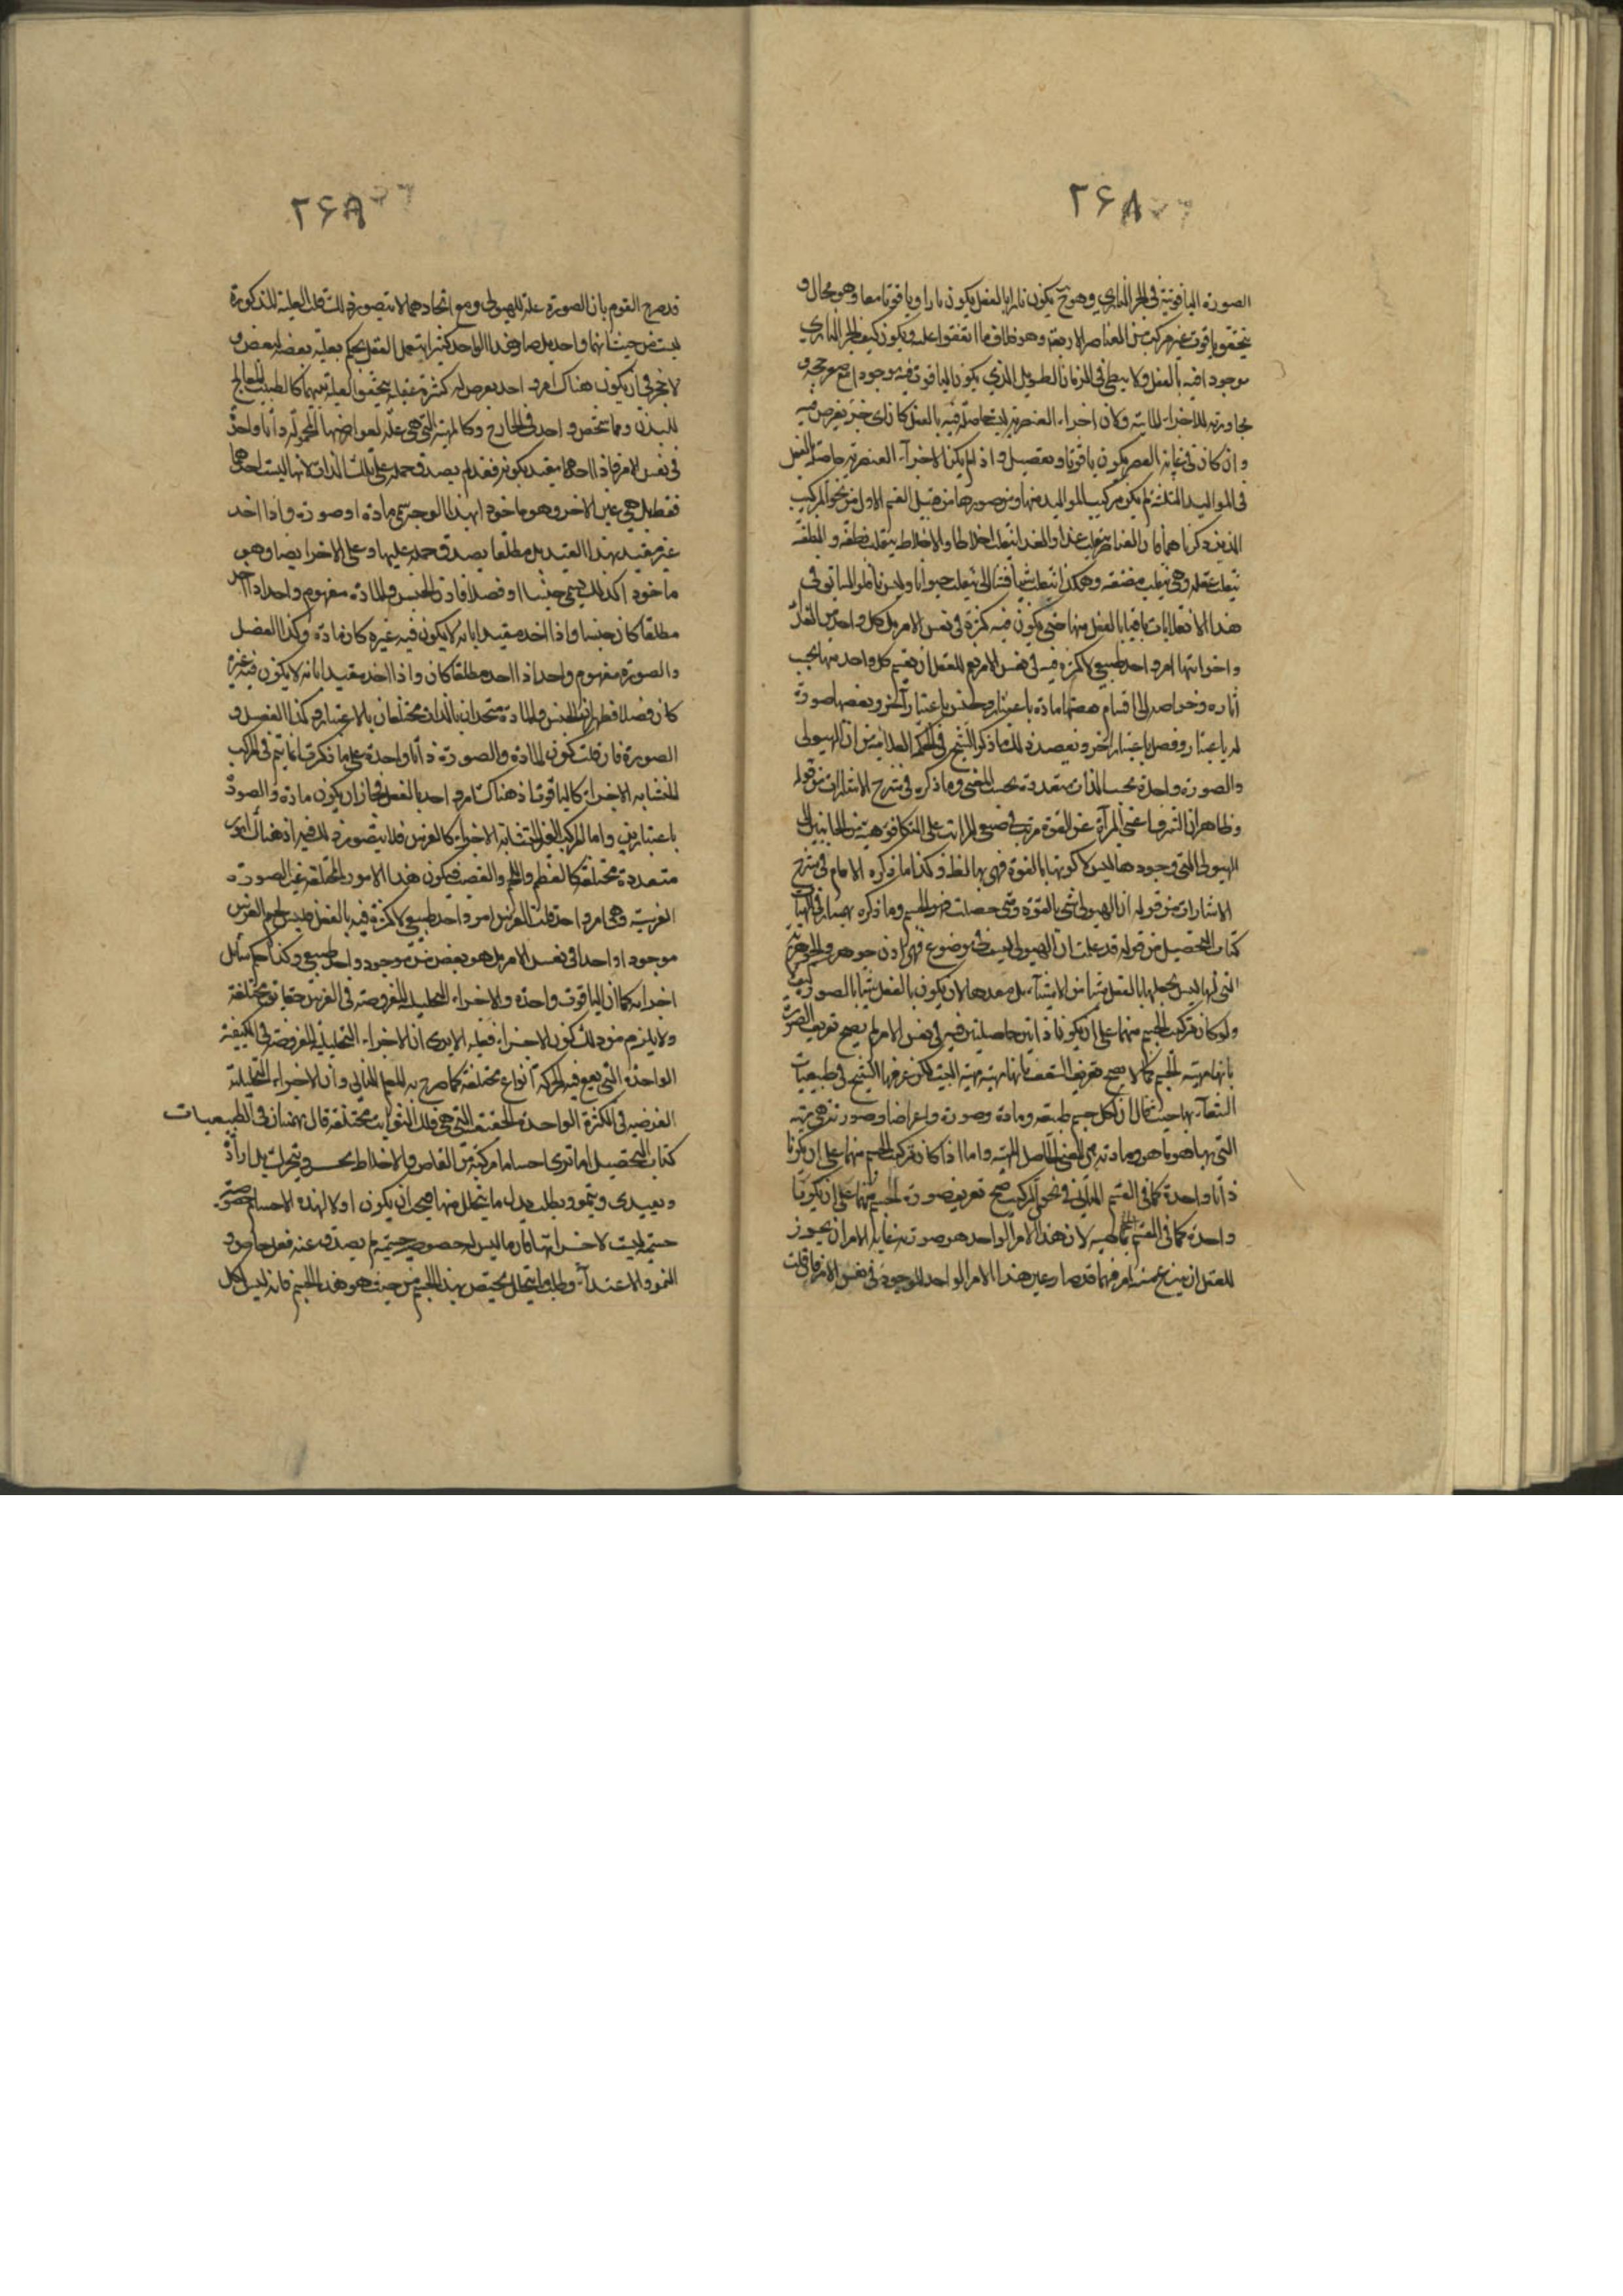 ٢۶٨
الصورة الياقوتية في الجزء الناري وهو يكون نارا بالفعل يكون نارا وياقوتا معا وهو محال و
يتحقق ياقوت غير مركب من العناصر الاربعة وهو خلاف ما اتفقوا عليه ويكون كيف الجزء الناري
موجودا فيه بالفعل ولا يبطل في الزمان الطويل الذي يكون الياقوت فيه موجودا مع
مجاورته للاجزاء المائية وكان اجزاء العنصرية ليست حاصلة فيه بالفعل كان اي جزء يفرض فيه
وان كان في غاية الصغر يكون ياقوتا وبتفصيل واذ لم يكن الاجزاء العنصرية حاصلة بالفعل
في المواليد الثلثة لم يكن تركيب المواليد منها ومن صورها من قبيل القسم الاول من نحو التركيب
الذين ذكرناهما فان العناصر تنقلب غذاء والغذا ينقلب اخلاطا والاخلاط ينقلب نطفة والنطفة
تنقلب علقة وهي تنقلب مضغة وهكذا ينقلب شيئا فشيئا الى ان ينقلب حيوانا وليس
هذا الانقلابات باقيا بالفعل منها حتى يكون فيه كثرة في نفس الامر بل كل واحد من
واجزائها امر واحد طبيعي لا كثرة فيه في نفس الامر نعم للعقل ان يقسم كل واحد منها بحسب
آثاره وخواصه الى اقسام بعضها مادة باعتبار وجنس باعتبار آخر وبعضها صورة
له باعتبار وفصل باعتبار آخر وبعضد ذلك ما ذكر الشيخ في الحكمة العلائية من ان الهيولى
والصورة واحدة بحسب الذات متعددة بحسب المعنى وما ذكره في شرح الاشارات من قوله
وظاهر ان الشرف اعني المرآة عن القوة مرتب في جميع المراتب على التكافؤ من الجانبين
الهيولى التي وجودها ليس الا كونها بالقوة فهي وكذا ما ذكره الامام في شرح
الاشارات من قوله ان الهيولى شيء بالقوة ومتى حصلت فهو الجسم وما ذكره بهمنيار في الهيات
كتاب التحصيل من قوله قد علمت ان الهيولى ليست في موضوع فهي اذن جوهر والجوهرية
التي لها ليس يجعلها بالفعل شيئا من الاشياء بل معدها لان يكون بالفعل شيئا بالصورة
ولو كان تركيب الجسم منهما على ان يكونا ذاتين حاصلتين فيه في نفس الامر لم يصح تعريف الصورة
بانها مهية الجسم كما لا يصح تعريف السقف بانها مهية البيت لكن عرفها الشيخ في طبيعيات
الشفاء بها حيث قال ان لكل جسم طبيعة ومادة وصورة واعراضا وصورته هي مهيته
التي بها هو ما هو ومادته هي المعنى الحامل لمهيته واما اذا كان تركيب الجسم منهما على ان يكونا
ذاتا واحدة كما في القسم الثاني في نحو التركيب صح تعريف صورة الجسم منهما على ان يكونا
واحدة كما في القسم لان هذا الامر الواحد هو صورته غاية الامر ان يجوز
للعقل ان ينتزع عنه امر فيهما قد صار عين هذا الامر الواحد الموجود في نفس الامر فان قلت
٢۶٨
قد صرح القوم بان الصورة علة للهيولى ومع اتحادهما لا يتصور ذلك قلت العلية المذكورة
ليست من حيث انهما واحد بل صار هذا الواحد كثيرا بتعمل العقل يحكم بعلية بعضه لبعض و
لا حجر في ان يكون هناك امر واحد يعرض له كثرة عقلية يتحقق العلية بينهما كالطبيب المعالج
للبدن وهما شخص واحد في الخارج وكالمهية التي هي علة لعوارضها المحمولة ذاتا واحدة
في نفس الامر فاذا احدهما مقيد بكونه فقط لم يصدق حمله على تلك الذات لانها ليست احدهما
فقط بل هي عين الاخر وهو ماخوذا بهذا الوجه يسمى مادة او صورة واذا اخذ
غير مقيد بهذا القيد بل مطلقا يصدق حمله عليها وعلى الاخر ايضا وهو
ماخوذا كذلك يسمى جنسا او فصلا فاذن الجنس والمادة مفهوم واحد اذا اخذ
مطلقا كان جنسا واذا اخذ مقيدا بانه لا يكون فيه غيره كان مادة وكذا الفصل
والصورة مفهوم واحد اذا اخذ مطلقا كان واذا اخذ مقيدا بانه لا يكون فيه غيره
كان فصلا فظهر ان الجنس والمادة متحدان بالذات مختلفان بالاعتبار وكذا الفصل و
الصورة فان قلت كون المادة والصورة ذاتا واحدة على ما ذكرت انما يتم في المركب
المتشابه الاجزاء كالياقوت اذ هناك امر واحد بالفعل فجاز ان يكون مادة والصورة
باعتبارين واما المركب الغير المتشابه الاجزاء كالفرس فلا يتصور ذلك فيه اذ هناك امور
متعددة مختلفة كالعظم واللحم والعصب فيكون هذا الامور المختلفة غير الصورة
الفرسية وهي امر واحد قلت الفرس امر واحد طبيعي لا كثرة فيه بالفعل فليس لحم الفرس
موجودا واحدا في نفس الامر بل هو بعض من موجود واحد طبيعي وكذا حكم سائر
اجزائه كما ان الياقوت واحدة والاجزاء التحليلية المفروضة في الفرس حقايق مختلفة
ولا يلزم من ذلك كون الاجزاء فعلية الا يرى ان الاجزاء التحليلية المفروضة في الكيفية
الواحدة التي يقع فيه الحركة انواع مختلفة كما صرح به المعلم الثاني وان الاجزاء التحليلية
الفرضية في الكثرة الواحدة الحقيقية التي هي فلك الثوابت مختلفة قال بهمنيار في الطبيعيات
كتاب التحصيل اما ترى اجساما مركبة من العناصر والاخلاط يحس ويتحرك بل ارادة
ويغتذي وينمو ويطلب بدل ما يتحلل منها فيجب ان يكون اولا لهذه الاجسام خصوصية
جسمية ليست لاجزائها فان ما ليس له خصوصية جسمية لم يصدق عنه فعل خاص و
النمو والاغتذاء وطلب ما يتحلل يختص بهذا الجسم من حيث هو هذا الجسم فانه ليس لكل